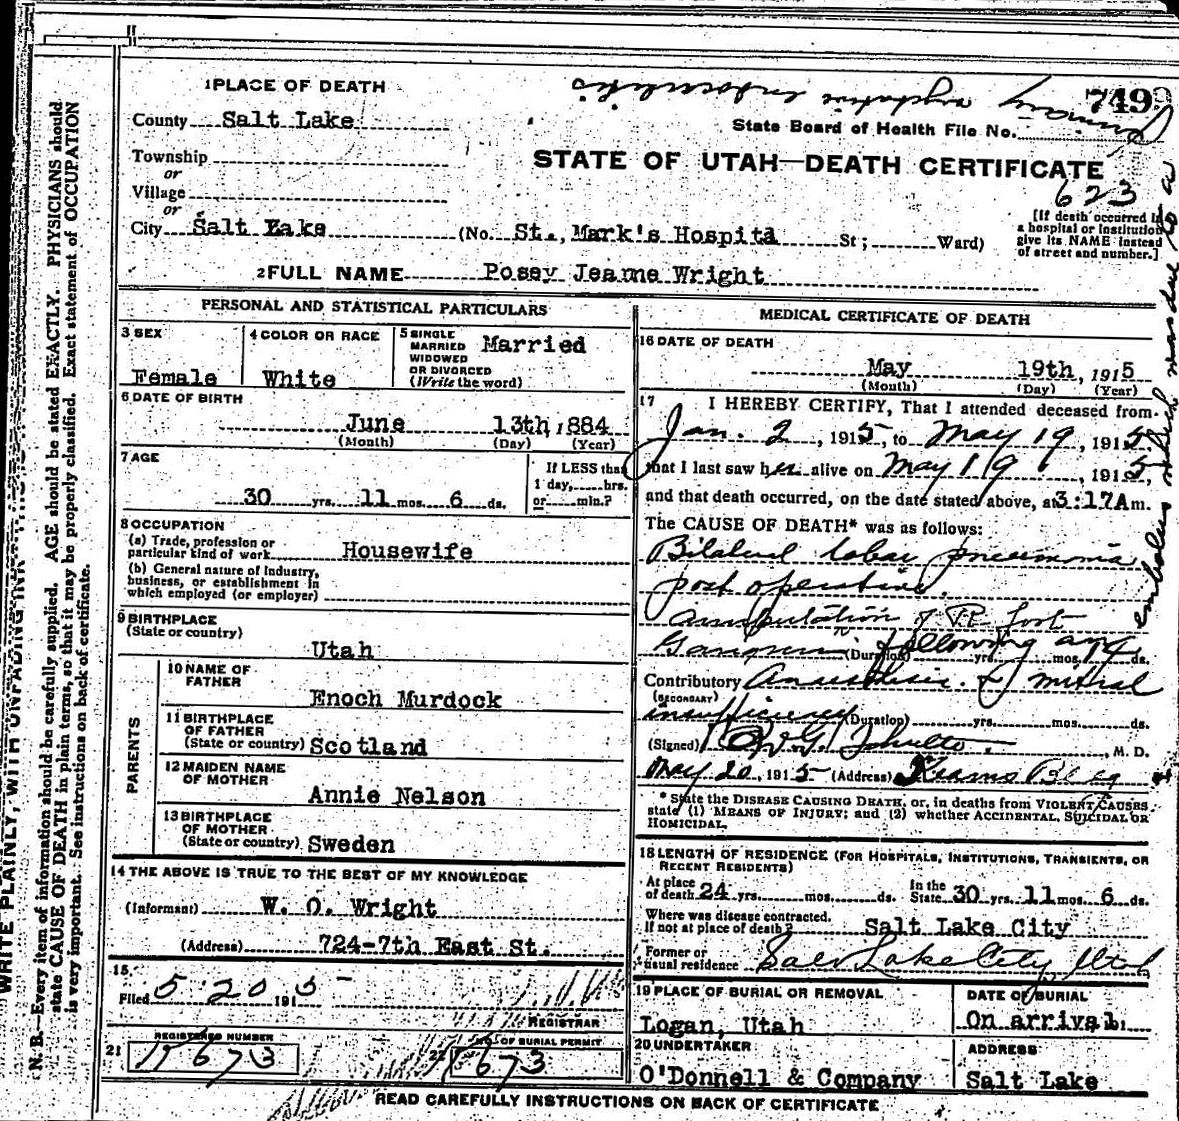 1 PLACE OF DEATH
County Salt Lake
Township
or
Village
or
City Salt Lake (No. St., Mark's Hospital St; Ward)
749
State Board of Health File No.
STATE OF UTAH—DEATH CERTIFICATE
623
[If death occurred in a hospital or institution give its NAME instead of street and number.]
2 FULL NAME Posey Jeanne Wright
PERSONAL AND STATISTICAL PARTICULARS
3 SEX
Female
4 COLOR OR RACE
White
5 SINGLE
MARRIED
WIDOWED
OR DIVORCED
(Write the word)
Married
6 DATE OF BIRTH
June 13th, 1884
(Month) (Day) (Year)
7 AGE
30 yrs. 11 mos. 6 ds.
If LESS than
1 day, hrs.
or min.?
8 OCCUPATION
(a) Trade, profession or
particular kind of work Housewife
(b) General nature of Industry,
business, or establishment in
which employed (or employer)
9 BIRTHPLACE
(State or country)
Utah
PARENTS
10 NAME OF
FATHER
Enoch Murdock
11 BIRTHPLACE
OF FATHER
(State or country) Scotland
12 MAIDEN NAME
OF MOTHER
Annie Nelson
13 BIRTHPLACE
OF MOTHER
(State or country) Sweden
14 THE ABOVE IS TRUE TO THE BEST OF MY KNOWLEDGE
(Informant) W. O. Wright
(Address) 724-7th East St.
15
Filed 5 20 1915
REGISTRAR
REGISTERED NUMBER
21
NO. OF BURIAL PERMIT
22
MEDICAL CERTIFICATE OF DEATH
16 DATE OF DEATH
May 19th, 1915
(Month) (Day) (Year)
17 I HEREBY CERTIFY, That I attended deceased from
Jan. 2, 1915, to May 19, 1915,
that I last saw her alive on May 19, 1915,
and that death occurred, on the date stated above, at 3:17A m.
The CAUSE OF DEATH* was as follows:
Bilateral lobar pneumonia
post operative.
Amputation of Rt foot
following (Duration) yrs. mos. ds.
Contributory Anaesthesia. & mitral
(SECONDARY)
insufficiency (Duration) yrs. mos. ds.
(Signed) M. D.
May 20, 1915 (Address) Kearns Bldg
* State the DISEASE CAUSING DEATH, or, in deaths from VIOLENT CAUSES
state (1) MEANS OF INJURY; and (2) whether ACCIDENTAL, SUICIDAL OR
HOMICIDAL.
18 LENGTH OF RESIDENCE (FOR HOSPITALS, INSTITUTIONS, TRANSIENTS, OR
RECENT RESIDENTS)
At place
of death 24 yrs. mos. ds. In the
State 30 yrs. 11 mos. 6 ds.
Where was disease contracted,
if not at place of death? Salt Lake City
Former or
usual residence Salt Lake City, Utah
19 PLACE OF BURIAL OR REMOVAL
Logan, Utah
DATE OF BURIAL
On arrival.
20 UNDERTAKER
O'Donnell & Company
ADDRESS
Salt Lake
READ CAREFULLY INSTRUCTIONS ON BACK OF CERTIFICATE
WRITE PLAINLY, WITH UNFADING INK
N. B.—Every item of information should be carefully supplied. AGE should be stated EXACTLY. PHYSICIANS should
state CAUSE OF DEATH in plain terms, so that it may be properly classified. Exact statement of OCCUPATION
is very important. See instructions on back of certificate.
embolus which was due to a
Primary vegetative endocarditis